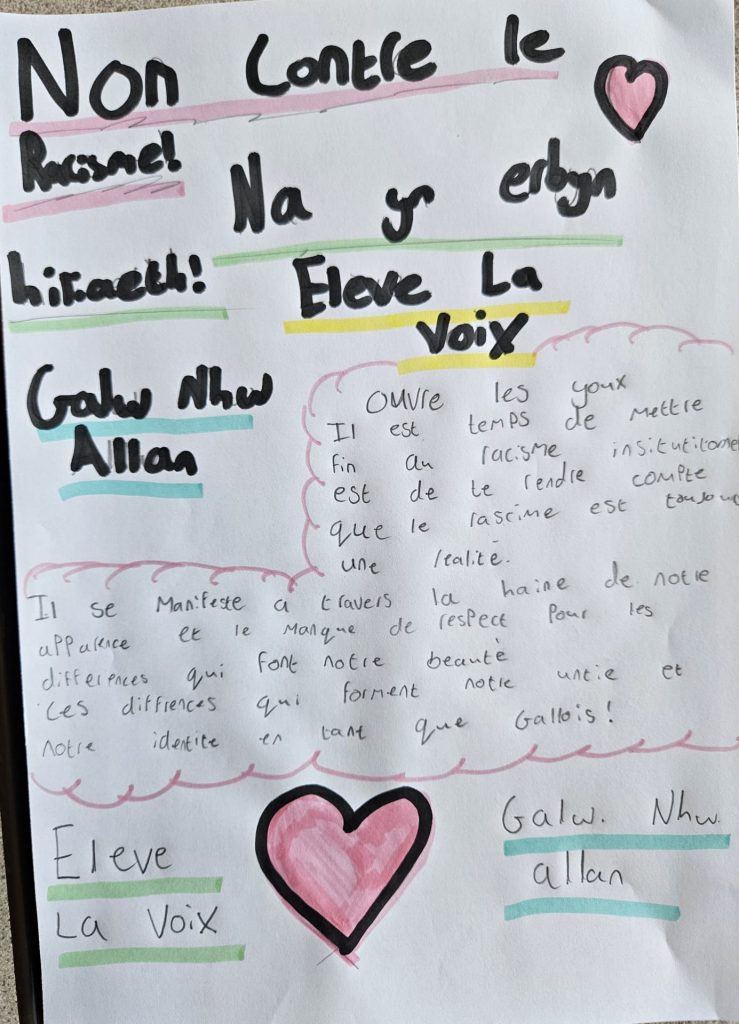 Non Contre le
Racisme!
Na yr erbyn
hiraeth!
Eleve La
Voix
Galw Nhw
Allan
Ouvre les youx
Il est temps de mettre
fin au racisme
est de te rendre compte
que le rascime est
une réalité.
Il se Manifeste a travers la haine de notre
apparence et le Manque de respect Pour les
differences qui font notre beautè
Ces diffrences qui forment notre untie et
notre identite en tant que Gallois!
Eleve
La Voix
Galw. Nhw.
allan